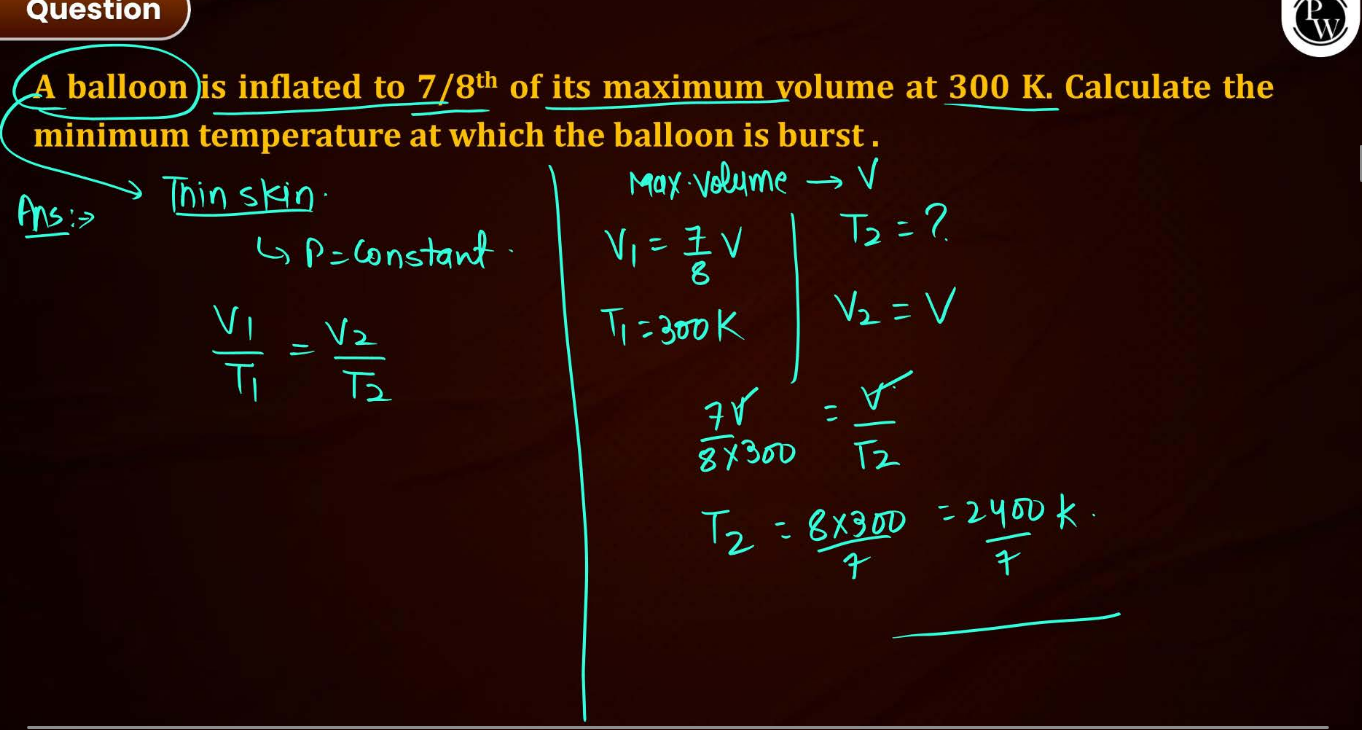 Question
PW
A balloon is inflated to 7/8th of its maximum volume at 300 K. Calculate the
minimum temperature at which the balloon is burst .
Ans:⇒
Thin skin.
↳ P = Constant.
V1/T1 = V2/T2
Max. Volume → V
V1 = 7/8 V
T2 = ?
T1 = 300 K
V2 = V
7V/8×300 = V/T2
T2 = 8×300/7 = 2400/7 k.